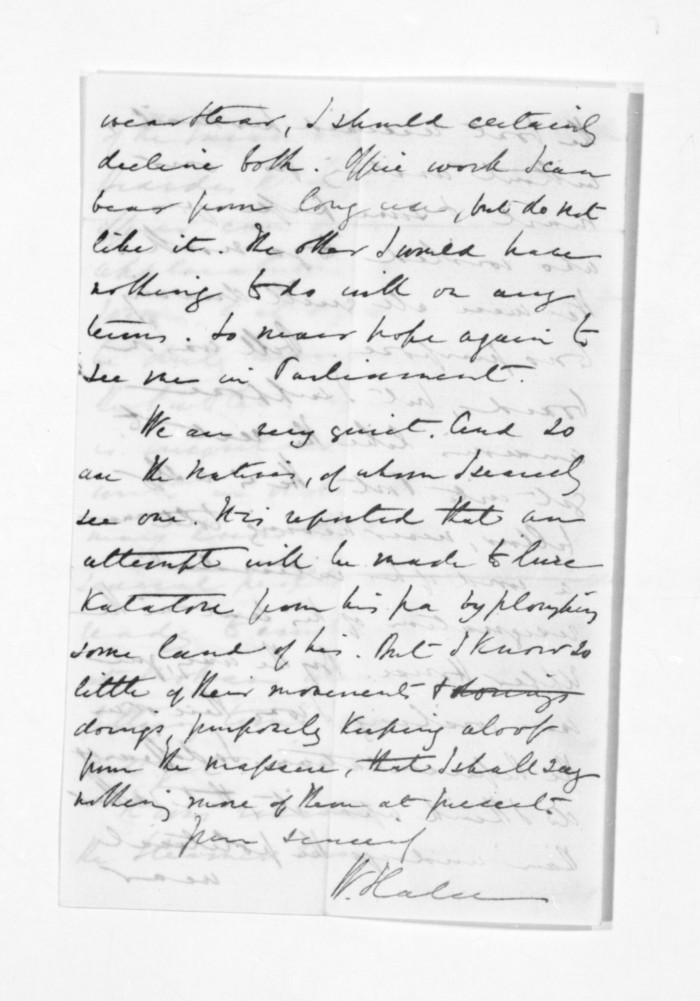 wear & tear, I should certainly
decline both. Office work I can
bear from long use, but do not
like it. The other I would have
nothing to do with on any
terms. So never hope again to
see me in Parliament.
We are very quiet. And so
are the natives, of whom I scarcely
see one. It is reported that an
attempt will be made to lure
Katatore from his pa by ploughing
some land of his. But I know so
little of their movements & doings
doings, purposely keeping aloof
from the massacre, that I shall say
nothing more of them at present.
Yours sincerely
W. Halse